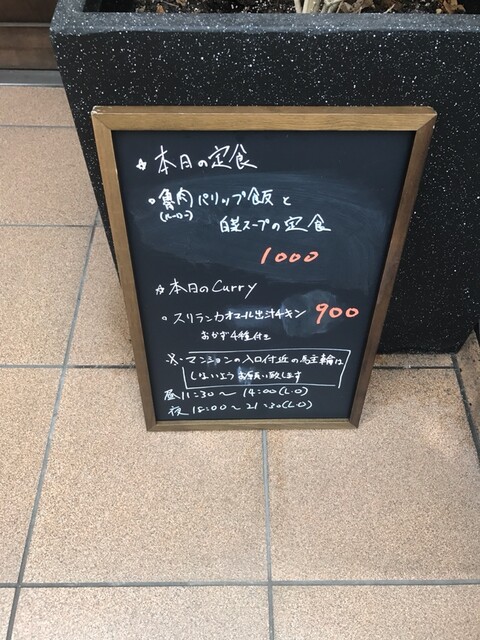 ☆本日の定食
○魯肉パリップ飯と
(ルーロー)
白菜スープの定食
1000
☆本日のCurry
○スリランカオマール出汁チキン 900
おかず4種付き
※マンションの入口付近の駐輪は
しないようお願い致します
昼11:30〜14:00(L.O)
夜18:00〜21:30(L.O)